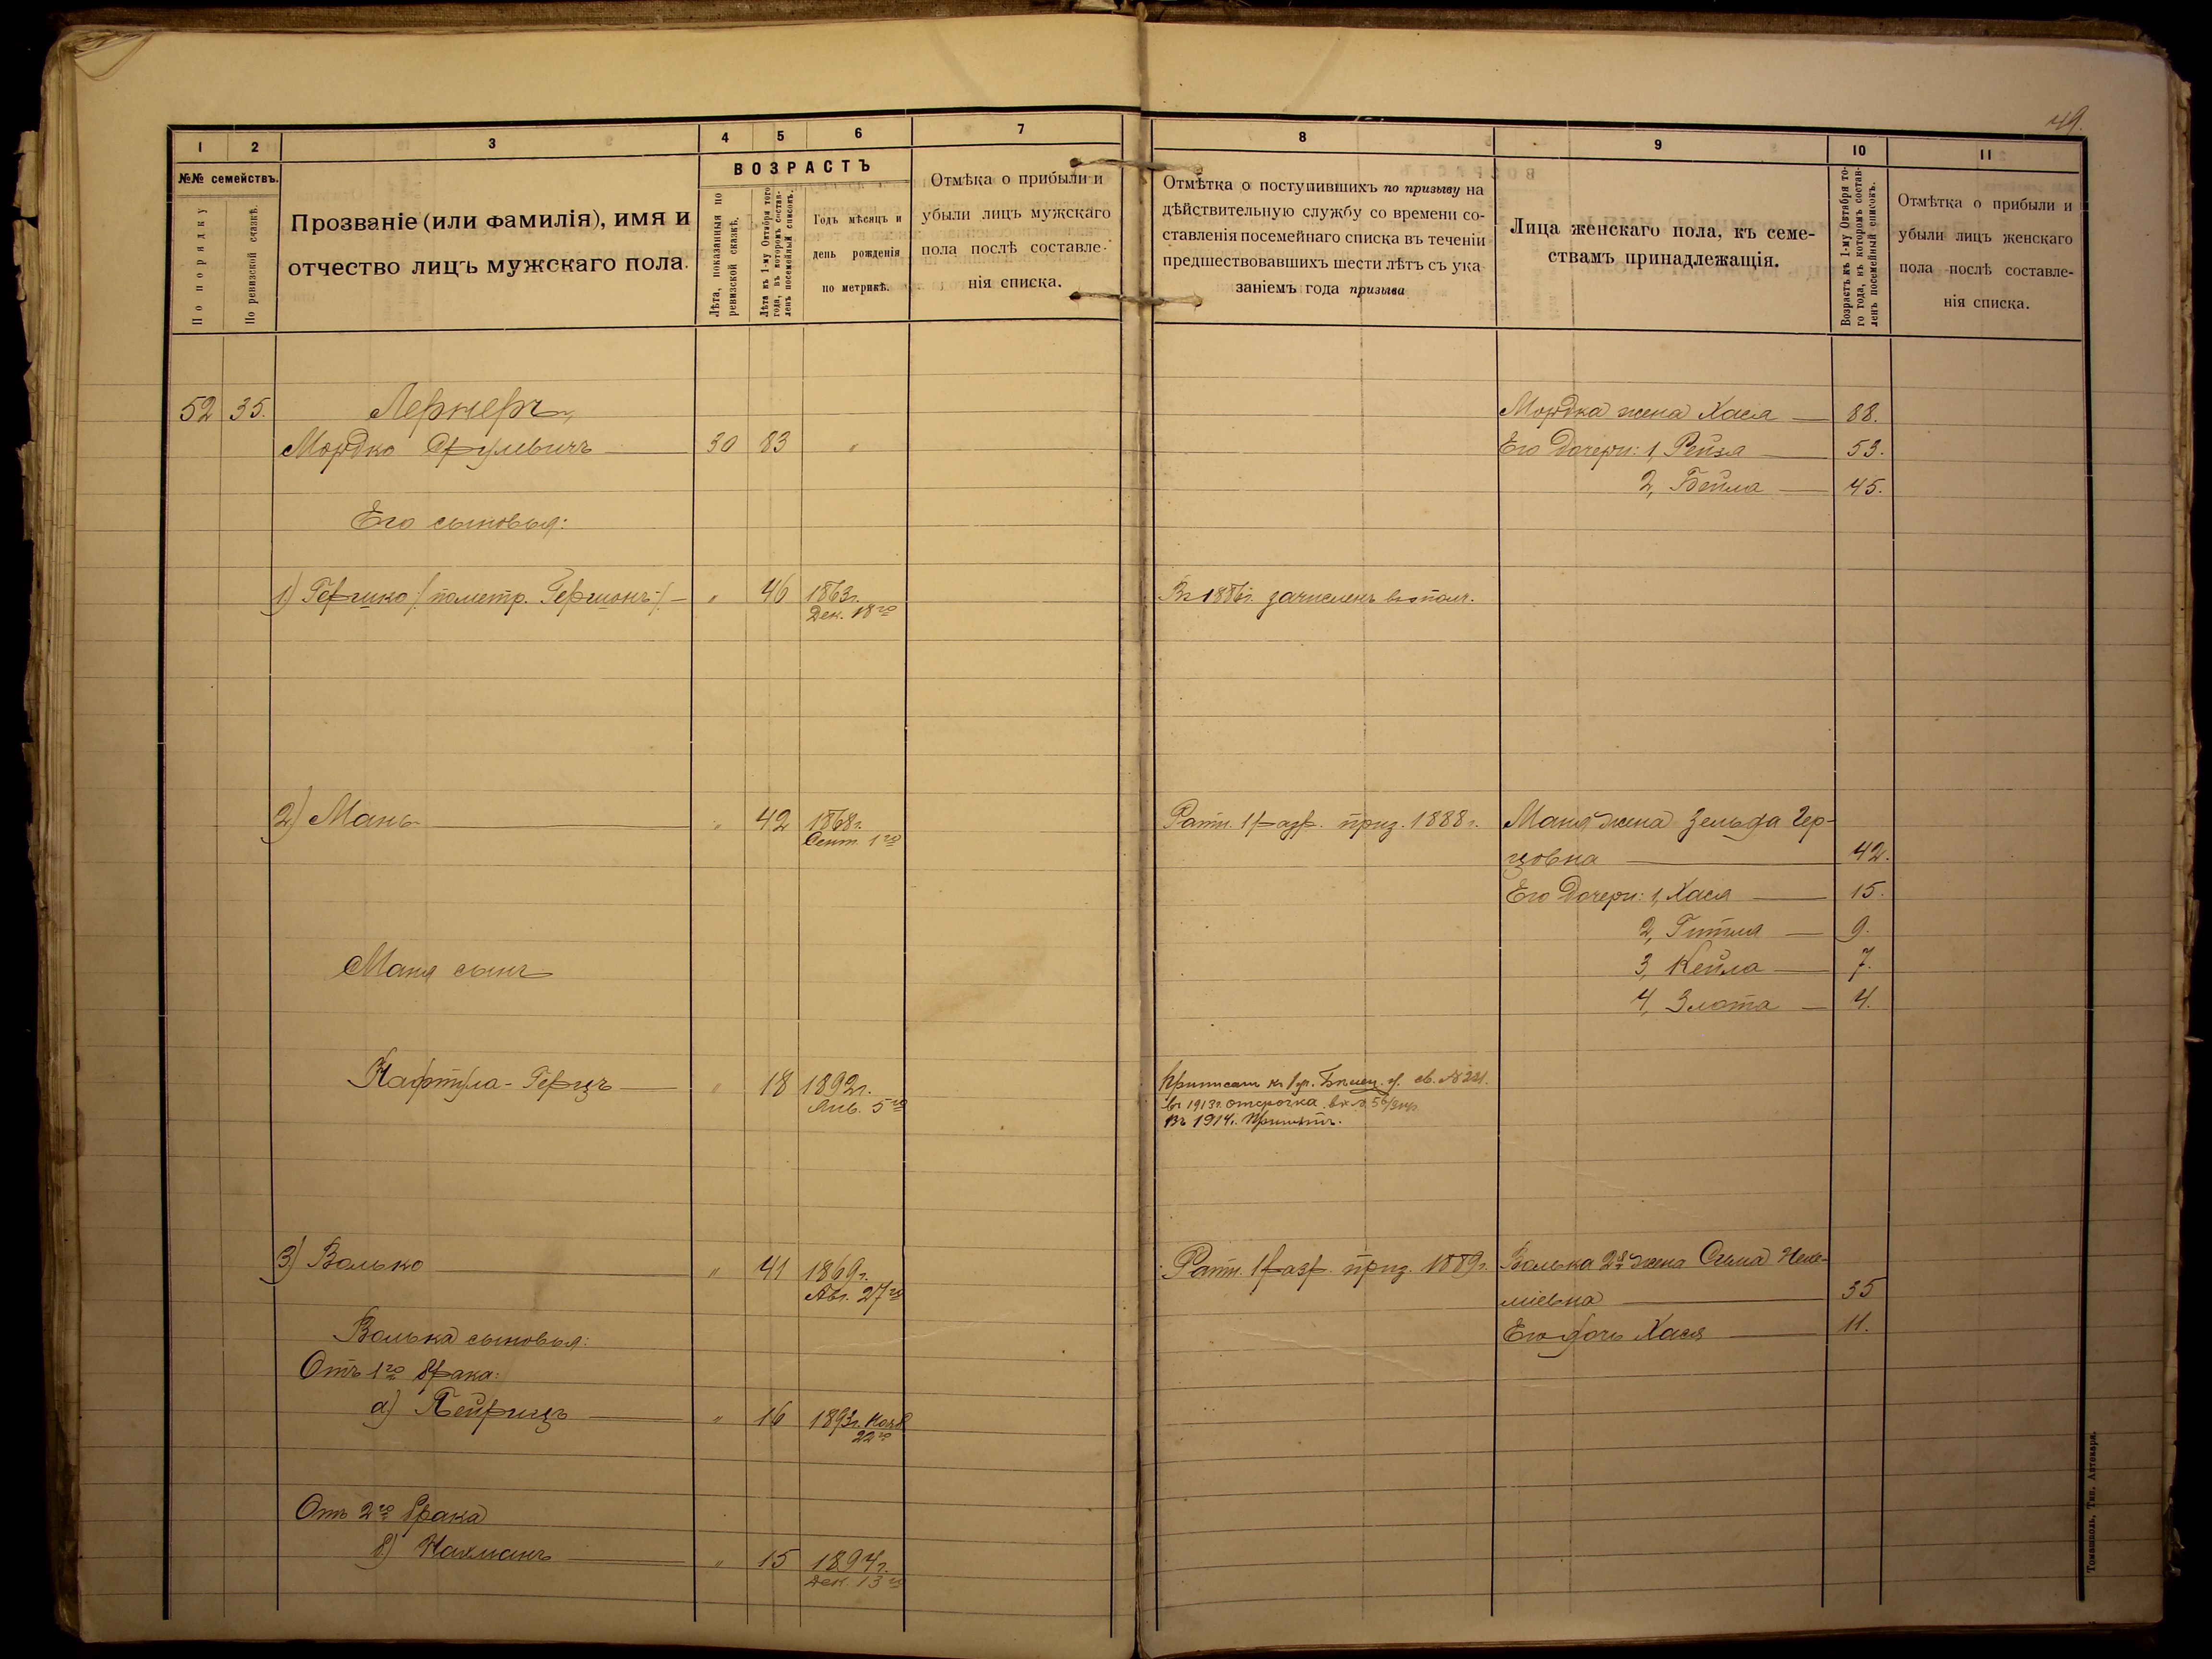 49.
1 2 3 4 5 6 7
№№ семействъ.
По порядку
По ревизской сказкѣ.
Прозваніе (или фамилія), имя и
отчество лицъ мужскаго пола.
ВОЗРАСТЪ
Лѣта, показанныя по
ревизской сказкѣ.
Лѣта къ 1-му Октября того
года, въ которомъ состав-
ленъ посемейный списокъ.
Годъ мѣсяцъ и
день рожденія
по метрикѣ.
Отмѣка о прибыли и
убыли лицъ мужскаго
пола послѣ составле-
нія списка.
8 9 10 11
Отмѣтка о поступившихъ по призыву на
дѣйствительную службу со времени со-
ставленія посемейнаго списка въ теченіи
предшествовавшихъ шести лѣтъ съ ука
заніемъ года призыва
Лица женскаго пола, къ семе-
ствамъ принадлежащія.
Возрастъ къ 1-му Октября то-
го года, въ которомъ состав-
ленъ посемейный списокъ.
Отмѣтка о прибыли и
убыли лицъ женскаго
пола послѣ составле-
нія списка.
52 35. Лернеръ
Мордко Срулевичъ 30 83 "
Его сыновья:
1) Гершко /: по метр. Гершонъ :/ " 46 1863г.
Дек. 18го
2) Мань " 42 1868г.
Сент. 1го
Маня сынъ
Нафтула-Герцъ " 18 1892г.
Янв. 5го
3) Волько " 41 1869г.
Авг. 27го
Волька сыновья:
Отъ 1го брака:
а) Лейрицъ " 16 1893г. Нояб
22го
Отъ 2го брака
б) Нахманъ " 15 1894г.
Дек. 13го
Мордка жена Хася 88.
Его дочери: 1, Рейзя 53.
2, Бейла 45.
Въ 1886г. зачисленъ въ ополч.
Ратн. 1 разр. приз. 1888г. Маня жена Зельда Гер-
цовна 42.
Его дочери: 1, Хася 15.
2, Гитля 9.
3, Кейла 7.
4, Злота 4.
Приписанъ къ уч. св. № 221.
въ 1913г. отсрочка
Въ 1914г. Принятъ.
Ратн. 1 разр. приз. 1889г. Волька 2я жена Сима Нехе-
міевна 35
Его дочь Хася 11.
Томашполь, Тип. Аптекаря.